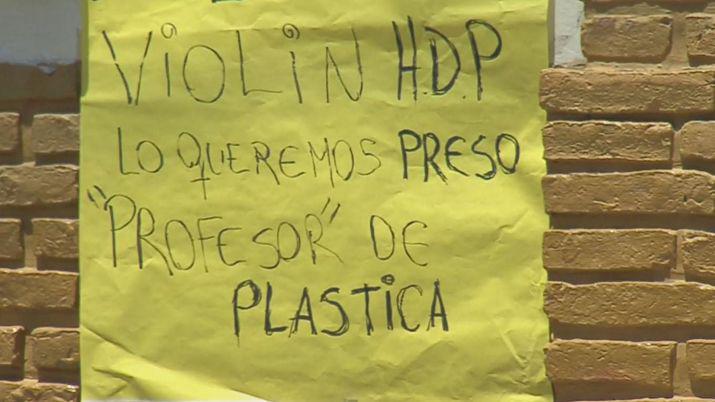 VIOLIN H.D.P
LO QUEREMOS PRESO
"PROFESOR" DE
PLASTICA